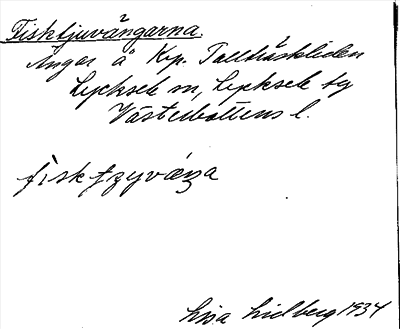 Fisktjuvängarna.
Ängar å Krp. Tallträskliden
Lycksele sn, Lycksele tg
Västerbottens l.
fisktzyväŋa
Lisa Lidberg 1934